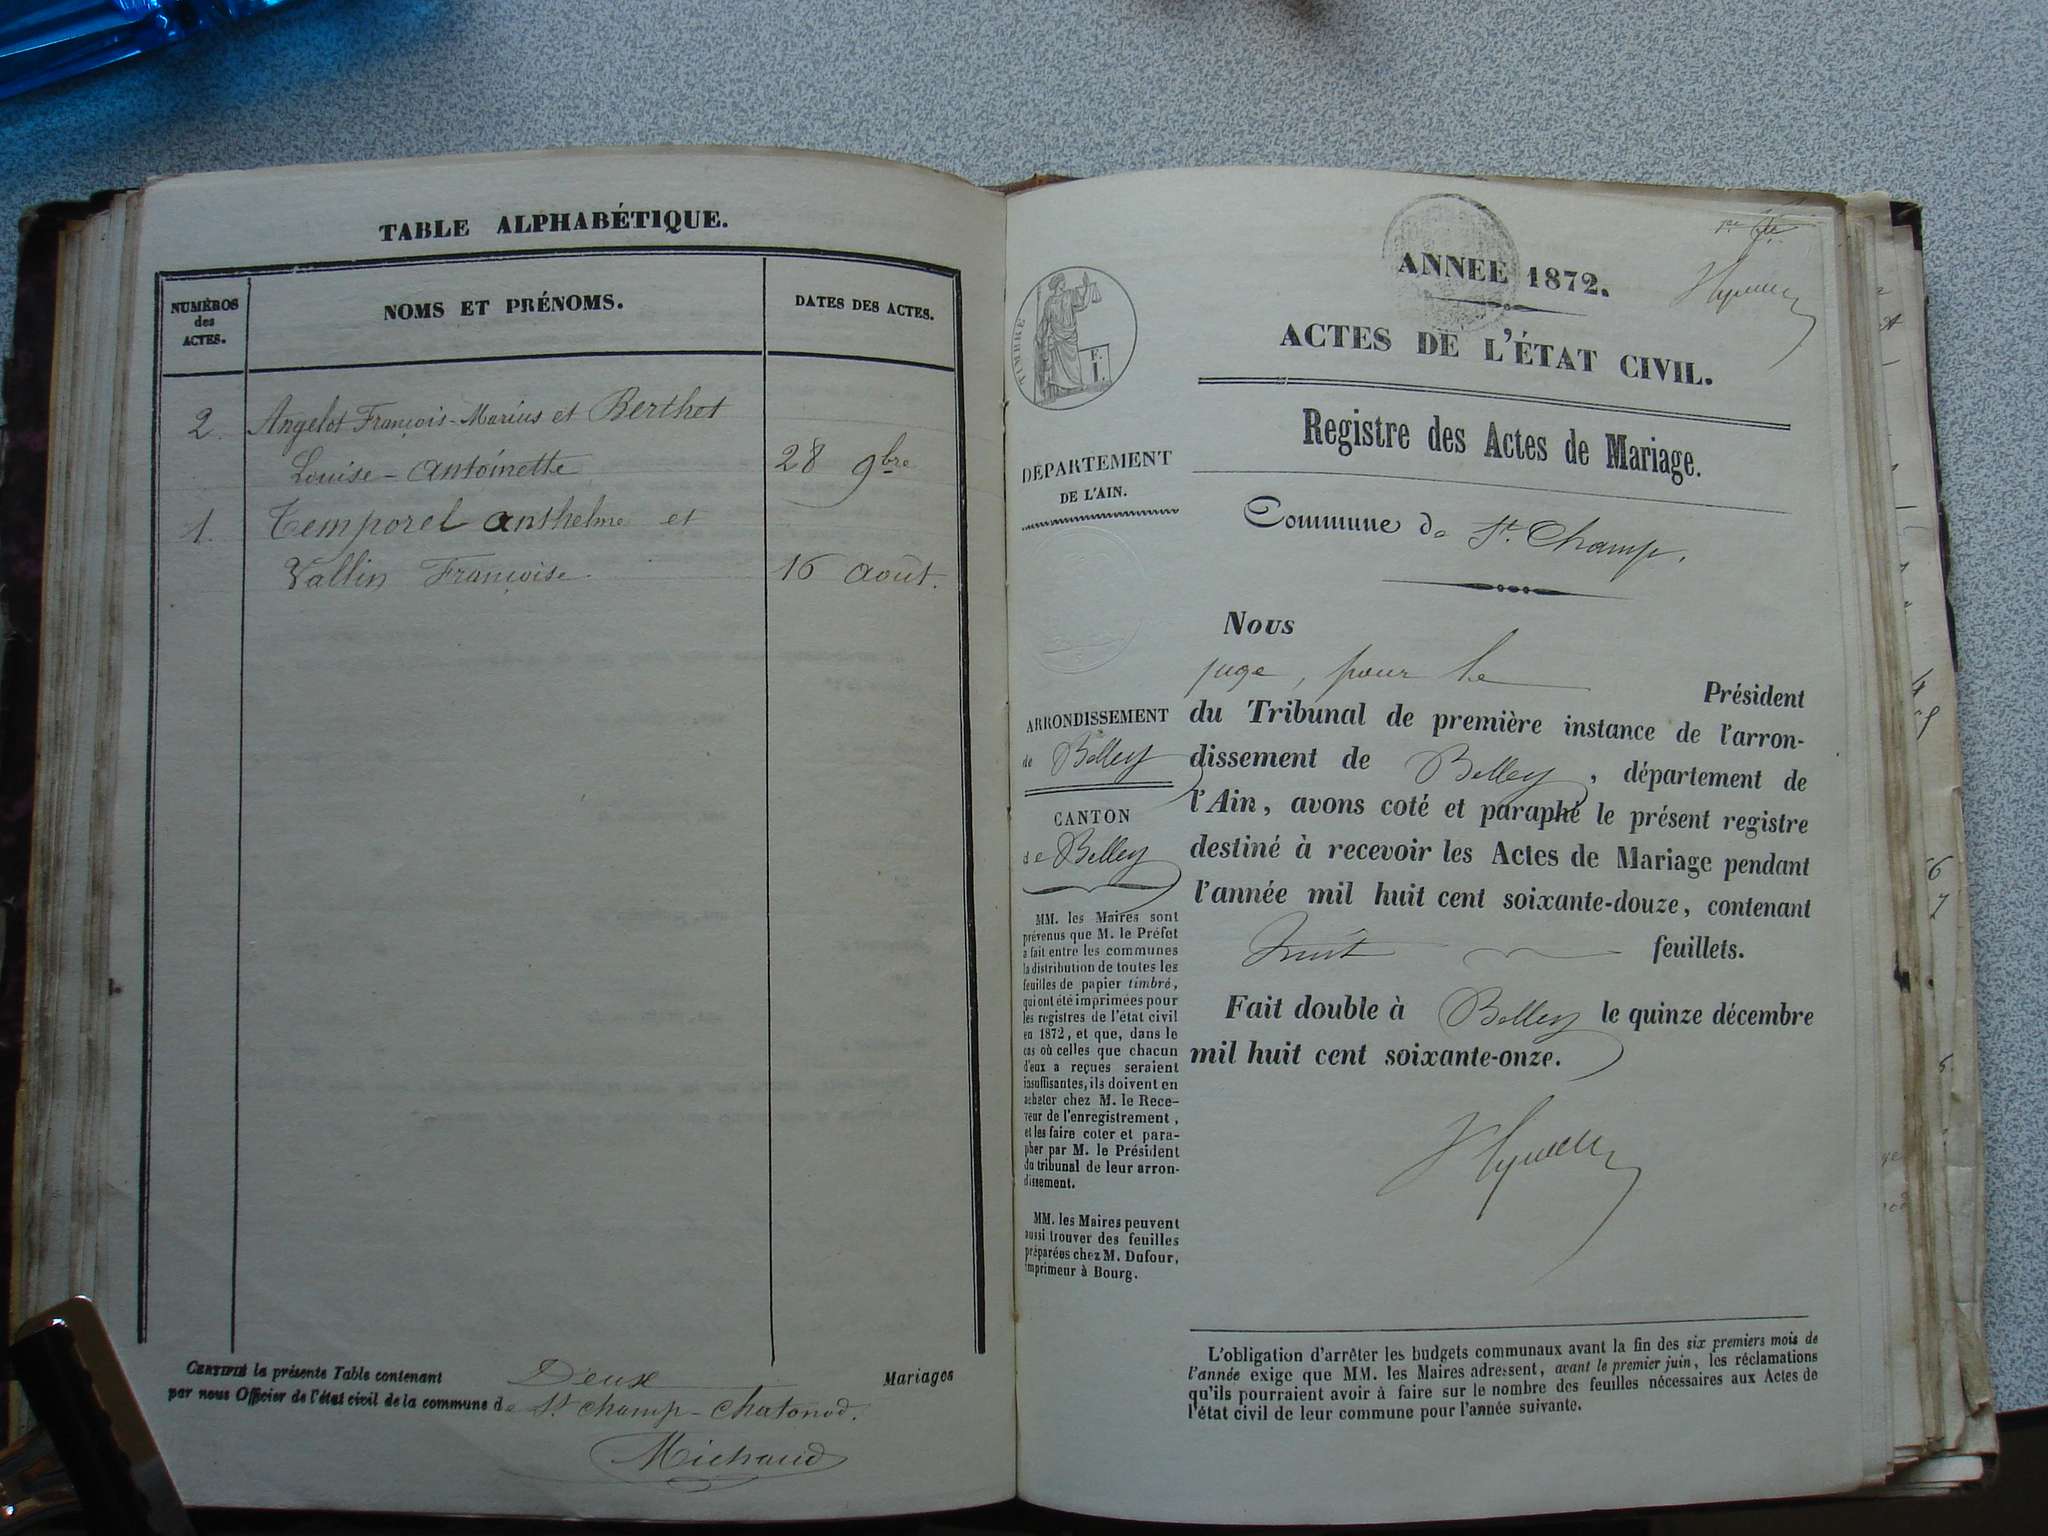 TABLE ALPHABÉTIQUE.
NUMÉROS
des
ACTES.
NOMS ET PRÉNOMS.
DATES DES ACTES.
2. Angelot François-Marius et Berthet
Louise-Antoinette 28 9bre
1. Temporel Anthelme et
Vallin Françoise. 16 Août.
CERTIFIÉ la présente Table contenant Deux Mariages
par nous Officier de l'état civil de la commune de St Champ-Chatonod.
Michaud
ANNÉE 1872.
ACTES DE L'ÉTAT CIVIL.
Registre des Actes de Mariage.
Commune de St. Champ.
TIMBRE
F.
I.
DÉPARTEMENT
DE L'AIN.
ARRONDISSEMENT
de Belley
CANTON
de Belley
MM. les Maires sont
prévenus que M. le Préfet
a fait entre les communes
la distribution de toutes les
feuilles de papier timbré,
qui ont été imprimées pour
les registres de l'état civil
en 1872, et que, dans le
cas où celles que chacun
d'eux a reçues seraient
insuffisantes, ils doivent en
acheter chez M. le Rece-
veur de l'enregistrement,
et les faire coter et para-
pher par M. le Président
du tribunal de leur arron-
dissement.
MM. les Maires peuvent
aussi trouver des feuilles
préparées chez M. Dufour,
imprimeur à Bourg.
NOUS
juge, pour le Président
du Tribunal de première instance de l'arron-
dissement de Belley, département de
l'Ain, avons coté et paraphé le présent registre
destiné à recevoir les Actes de Mariage pendant
l'année mil huit cent soixante-douze, contenant
huit feuillets.
Fait double à Belley le quinze décembre
mil huit cent soixante-onze.
L'obligation d'arrêter les budgets communaux avant la fin des six premiers mois de
l'année exige que MM. les Maires adressent, avant le premier juin, les réclamations
qu'ils pourraient avoir à faire sur le nombre des feuilles nécessaires aux Actes de
l'état civil de leur commune pour l'année suivante.